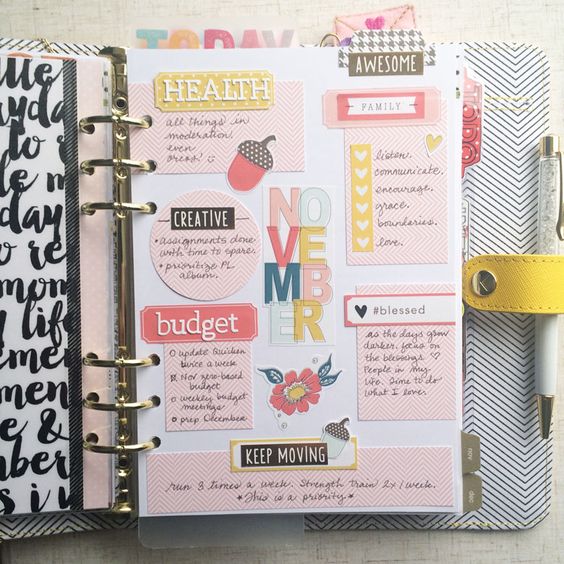 TODAY
AWESOME
HEALTH
all things in
moderation.
even
oreos! :)
FAMILY
listen.
communicate.
encourage.
grace.
boundaries.
love.
CREATIVE
• assignments done
with time to spare.
• prioritize PL
album.
NO
VE
EM
BER
budget
update Quicken
twice a week
Nov zero-based
budget
weekly budget
meetings
prep December
#blessed
as the days grow
darker, focus on
the blessings ♡
People in my
life. Time to do
what I love.
KEEP MOVING
run 3 times a week. Strength train 2x/week.
*This is a priority.*
TODO
K
nov
dec